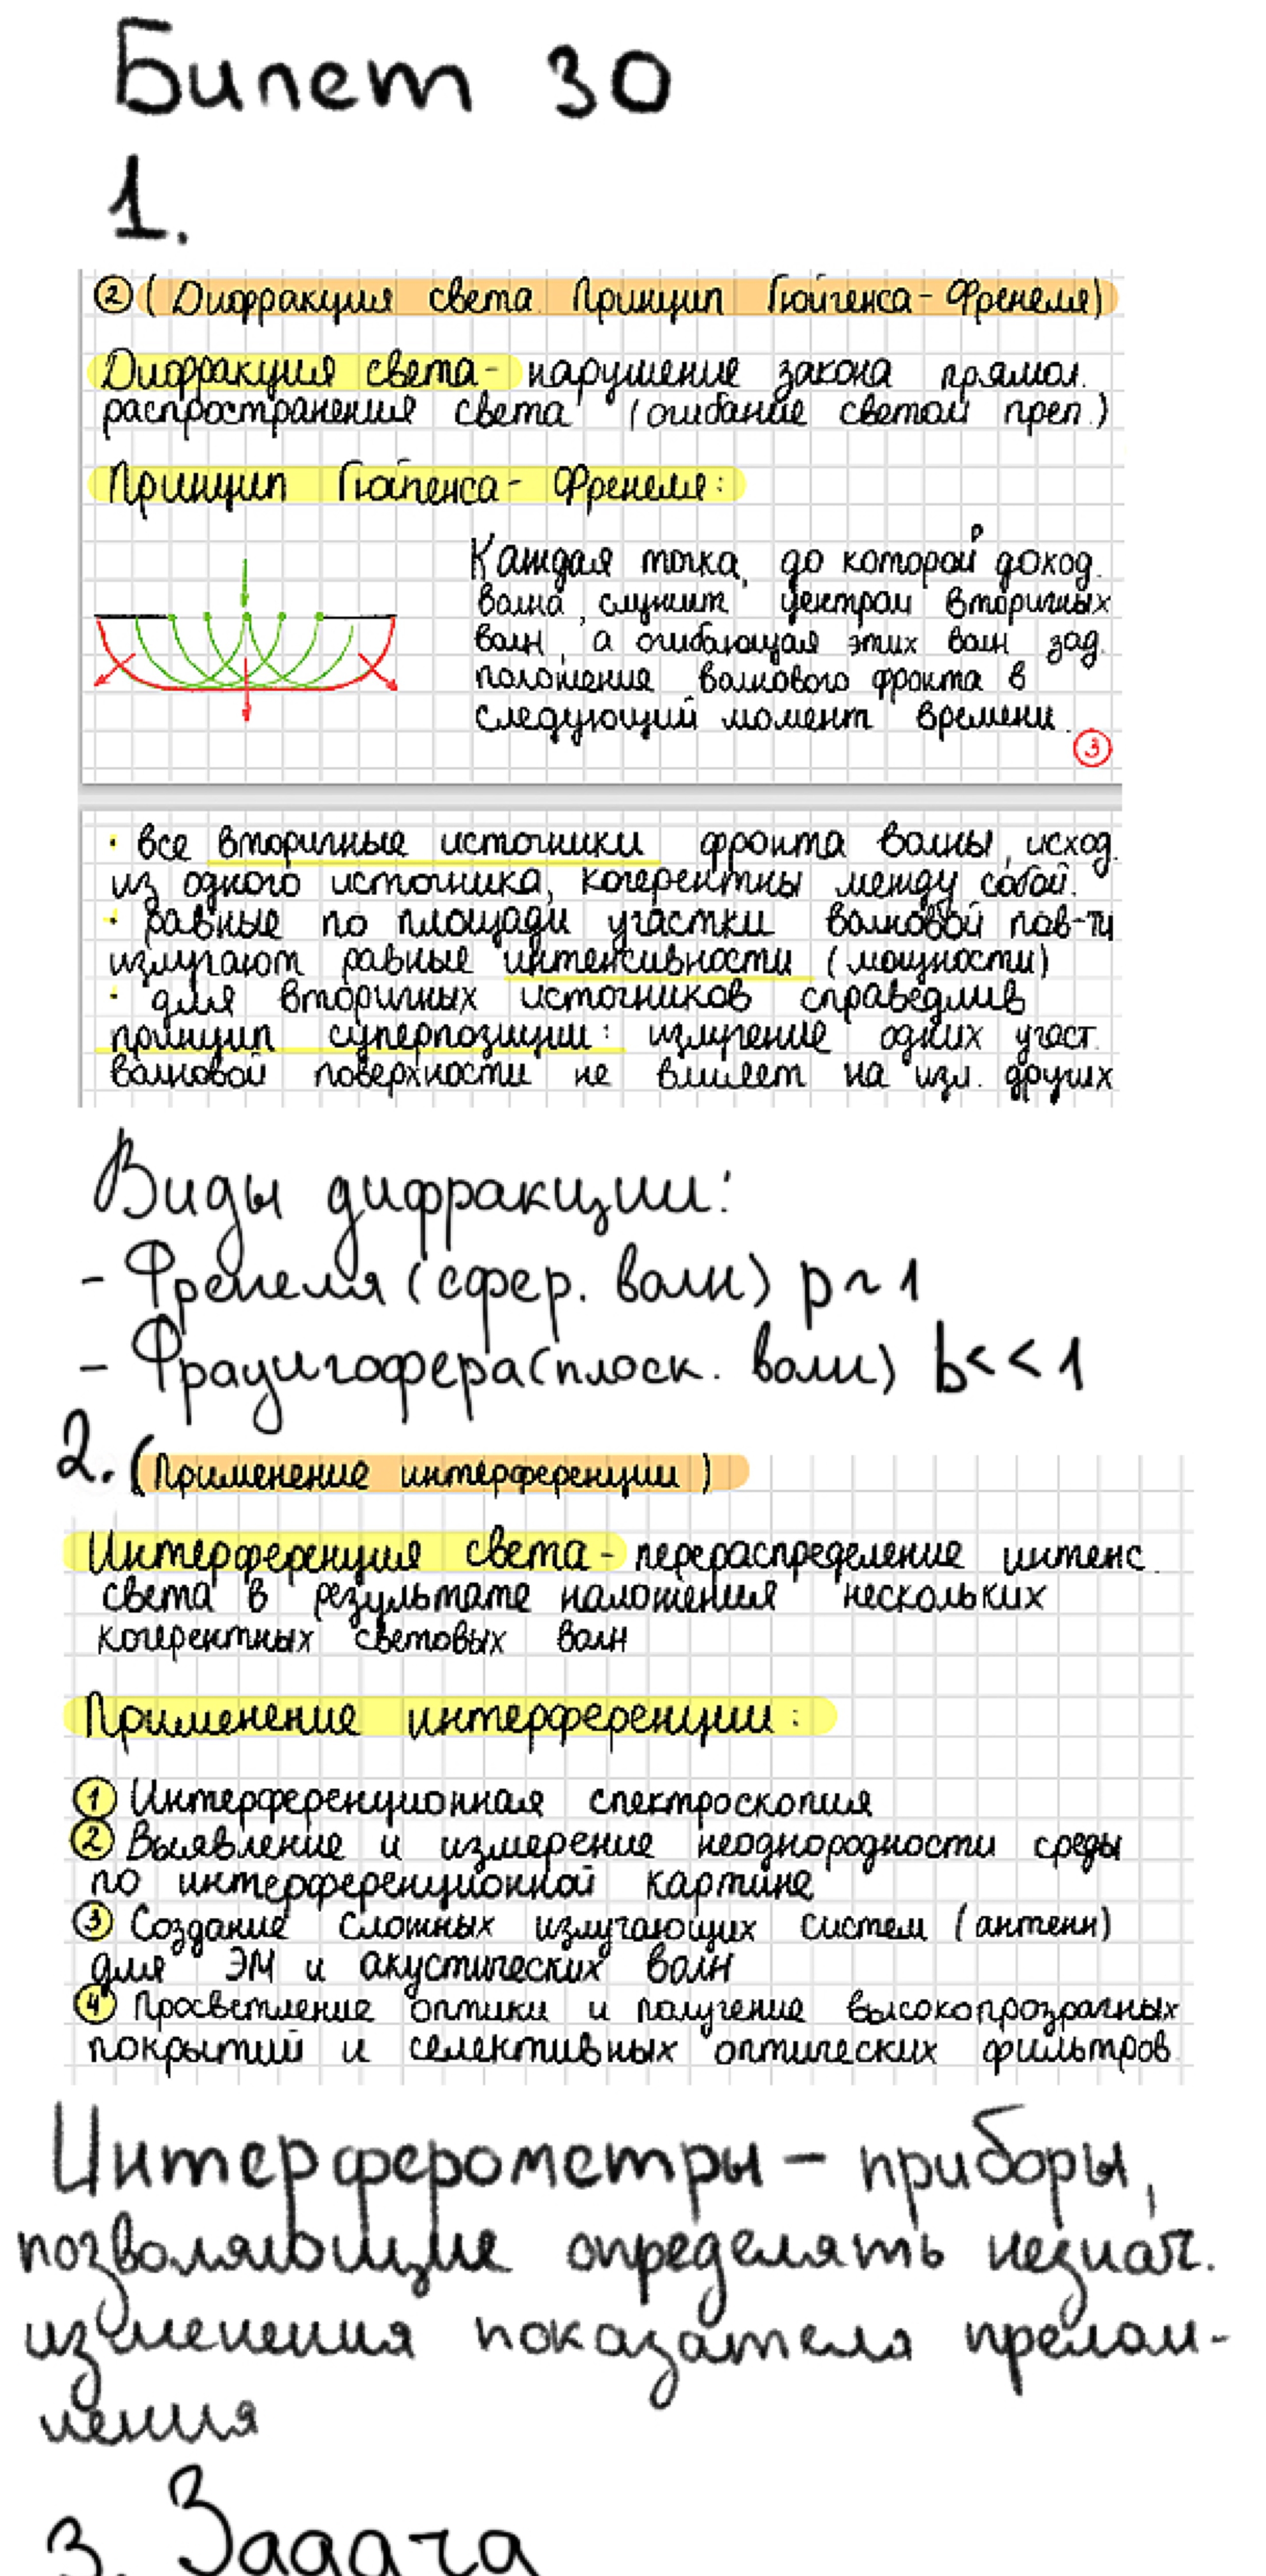 Билет 30
1.
② (Дифракция света. Принцип Гюйгенса-Френеля)
Дифракция света - нарушение закона прямол.
распространения света (огибание светом преп.)
Принцип Гюйгенса-Френеля:
Каждая точка, до которой доход.
волна, служит центром вторичных
волн, а огибающая этих волн зад.
положение волнового фронта в
следующий момент времени.
③
· все вторичные источники фронта волны, исход.
из одного источника, когерентны между собой.
· равные по площади участки волновой пов-ти
излучают равные интенсивности (мощности)
· для вторичных источников справедлив
принцип суперпозиции: излучение одних участ.
волновой поверхности не влияет на изл. других
Виды дифракции:
- Френеля (сфер. волн) p ~ 1
- Фраунгофера (плоск. волн) b << 1
2. (Применение интерференции)
Интерференция света - перераспределение интенс.
света в результате наложения нескольких
когерентных световых волн
Применение интерференции:
① Интерференционная спектроскопия
② Выявление и измерение неоднородности среды
по интерференционной картине
③ Создание сложных излучающих систем (антенн)
для ЭМ и акустических волн
④ Просветление оптики и получение высокопрозрачных
покрытий и селективных оптических фильтров.
Интерферометры - приборы,
позволяющие определять незнач.
изменения показателя прелом-
ления
3. Задача